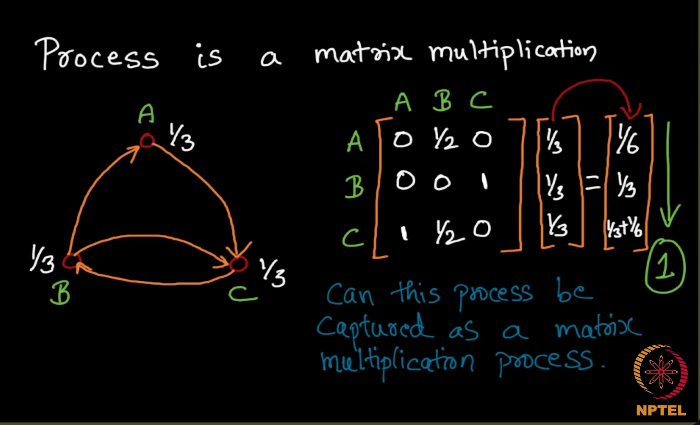 Process is a matrix multiplication
A
1/3
1/3
B
C
1/3
A B C
A 0 1/2 0
B 0 0 1
C 1 1/2 0
1/3
1/3
1/3
=
1/6
1/3
1/3+1/6
1
Can this process be
captured as a matrix
multiplication process.
NPTEL